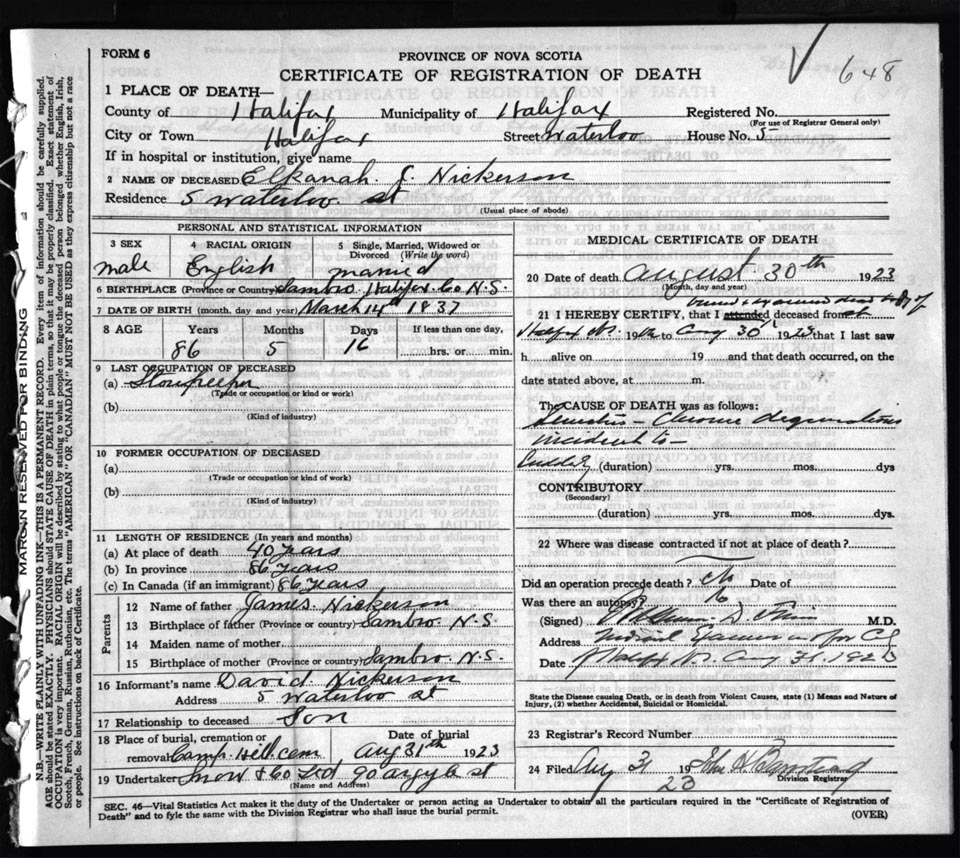 648
FORM 6
PROVINCE OF NOVA SCOTIA
CERTIFICATE OF REGISTRATION OF DEATH
1 PLACE OF DEATH—
County of Halifax Municipality of Halifax Registered No.
(For use of Registrar General only)
City or Town Halifax Street Waterloo House No. 5
If in hospital or institution, give name
2 NAME OF DECEASED Elkanah Nickerson
Residence 5 Waterloo St
(Usual place of abode)
PERSONAL AND STATISTICAL INFORMATION
3 SEX 4 RACIAL ORIGIN 5 Single, Married, Widowed or Divorced (Write the word)
Male English Married
6 BIRTHPLACE (Province or Country) Sambro Halifax Co N.S.
7 DATE OF BIRTH (month, day and year) March 14th 1837
8 AGE Years Months Days If less than one day,
86 5 16 hrs. or min.
9 LAST OCCUPATION OF DECEASED
(a) Storekeeper
(Trade or occupation or kind or work)
(b)
(Kind of industry)
10 FORMER OCCUPATION OF DECEASED
(a)
(Trade or occupation or kind or work)
(b)
(Kind of industry)
11 LENGTH OF RESIDENCE (In years and months)
(a) At place of death 40 years
(b) In province 86 years
(c) In Canada (if an immigrant) 86 years
Parents
12 Name of father James Nickerson
13 Birthplace of father (Province or country) Sambro N.S.
14 Maiden name of mother
15 Birthplace of mother (Province or country) Sambro N.S.
16 Informant's name David Nickerson
Address 5 Waterloo St
17 Relationship to deceased Son
18 Place of burial, cremation or removal Camp Hill Cem Date of burial Aug 31th 1923
19 Undertaker Snow & Co Ltd 90 Argyle St
(Name and Address)
MEDICAL CERTIFICATE OF DEATH
20 Date of death August 30th 1923
(Month, day and year)
21 I HEREBY CERTIFY, that I attended deceased from
19 to Aug 30 1923 that I last saw
h alive on 19 and that death occurred, on the
date stated above, at m.
The CAUSE OF DEATH was as follows:
Chronic degenerations
incident to
(duration) yrs. mos. dys
CONTRIBUTORY
(Secondary)
(duration) yrs. mos. dys
22 Where was disease contracted if not at place of death?
Did an operation precede death? Date of
Was there an autopsy?
(Signed) M.D.
Address Medical Examiner for
Date Halifax Aug 31. 1923
State the Disease causing Death, or in death from Violent Causes, state (1) Means and Nature of
Injury, (2) whether Accidental, Suicidal or Homicidal.
23 Registrar's Record Number
24 Filed Aug 31 19 23
Division Registrar
SEC. 46—Vital Statistics Act makes it the duty of the Undertaker or person acting as Undertaker to obtain all the particulars required in the "Certificate of Registration of
Death" and to fyle the same with the Division Registrar who shall issue the burial permit.
(OVER)
MARGIN RESERVED FOR BINDING
N.B.—WRITE PLAINLY WITH UNFADING INK—THIS IS A PERMANENT RECORD. Every item of information should be carefully supplied.
AGE should be stated EXACTLY. PHYSICIANS should STATE CAUSE OF DEATH in plain terms, so that it may be properly classified. Exact statement of
OCCUPATION is very important. RACIAL ORIGIN will be described by stating to what people or tongue the deceased person belonged whether English, Irish,
Scotch, French, German, Russian, Ruthenian, etc. The terms "AMERICAN" OR "CANADIAN" MUST NOT BE USED as they express citizenship but not a race
or people. See instructions on back of Certificate.